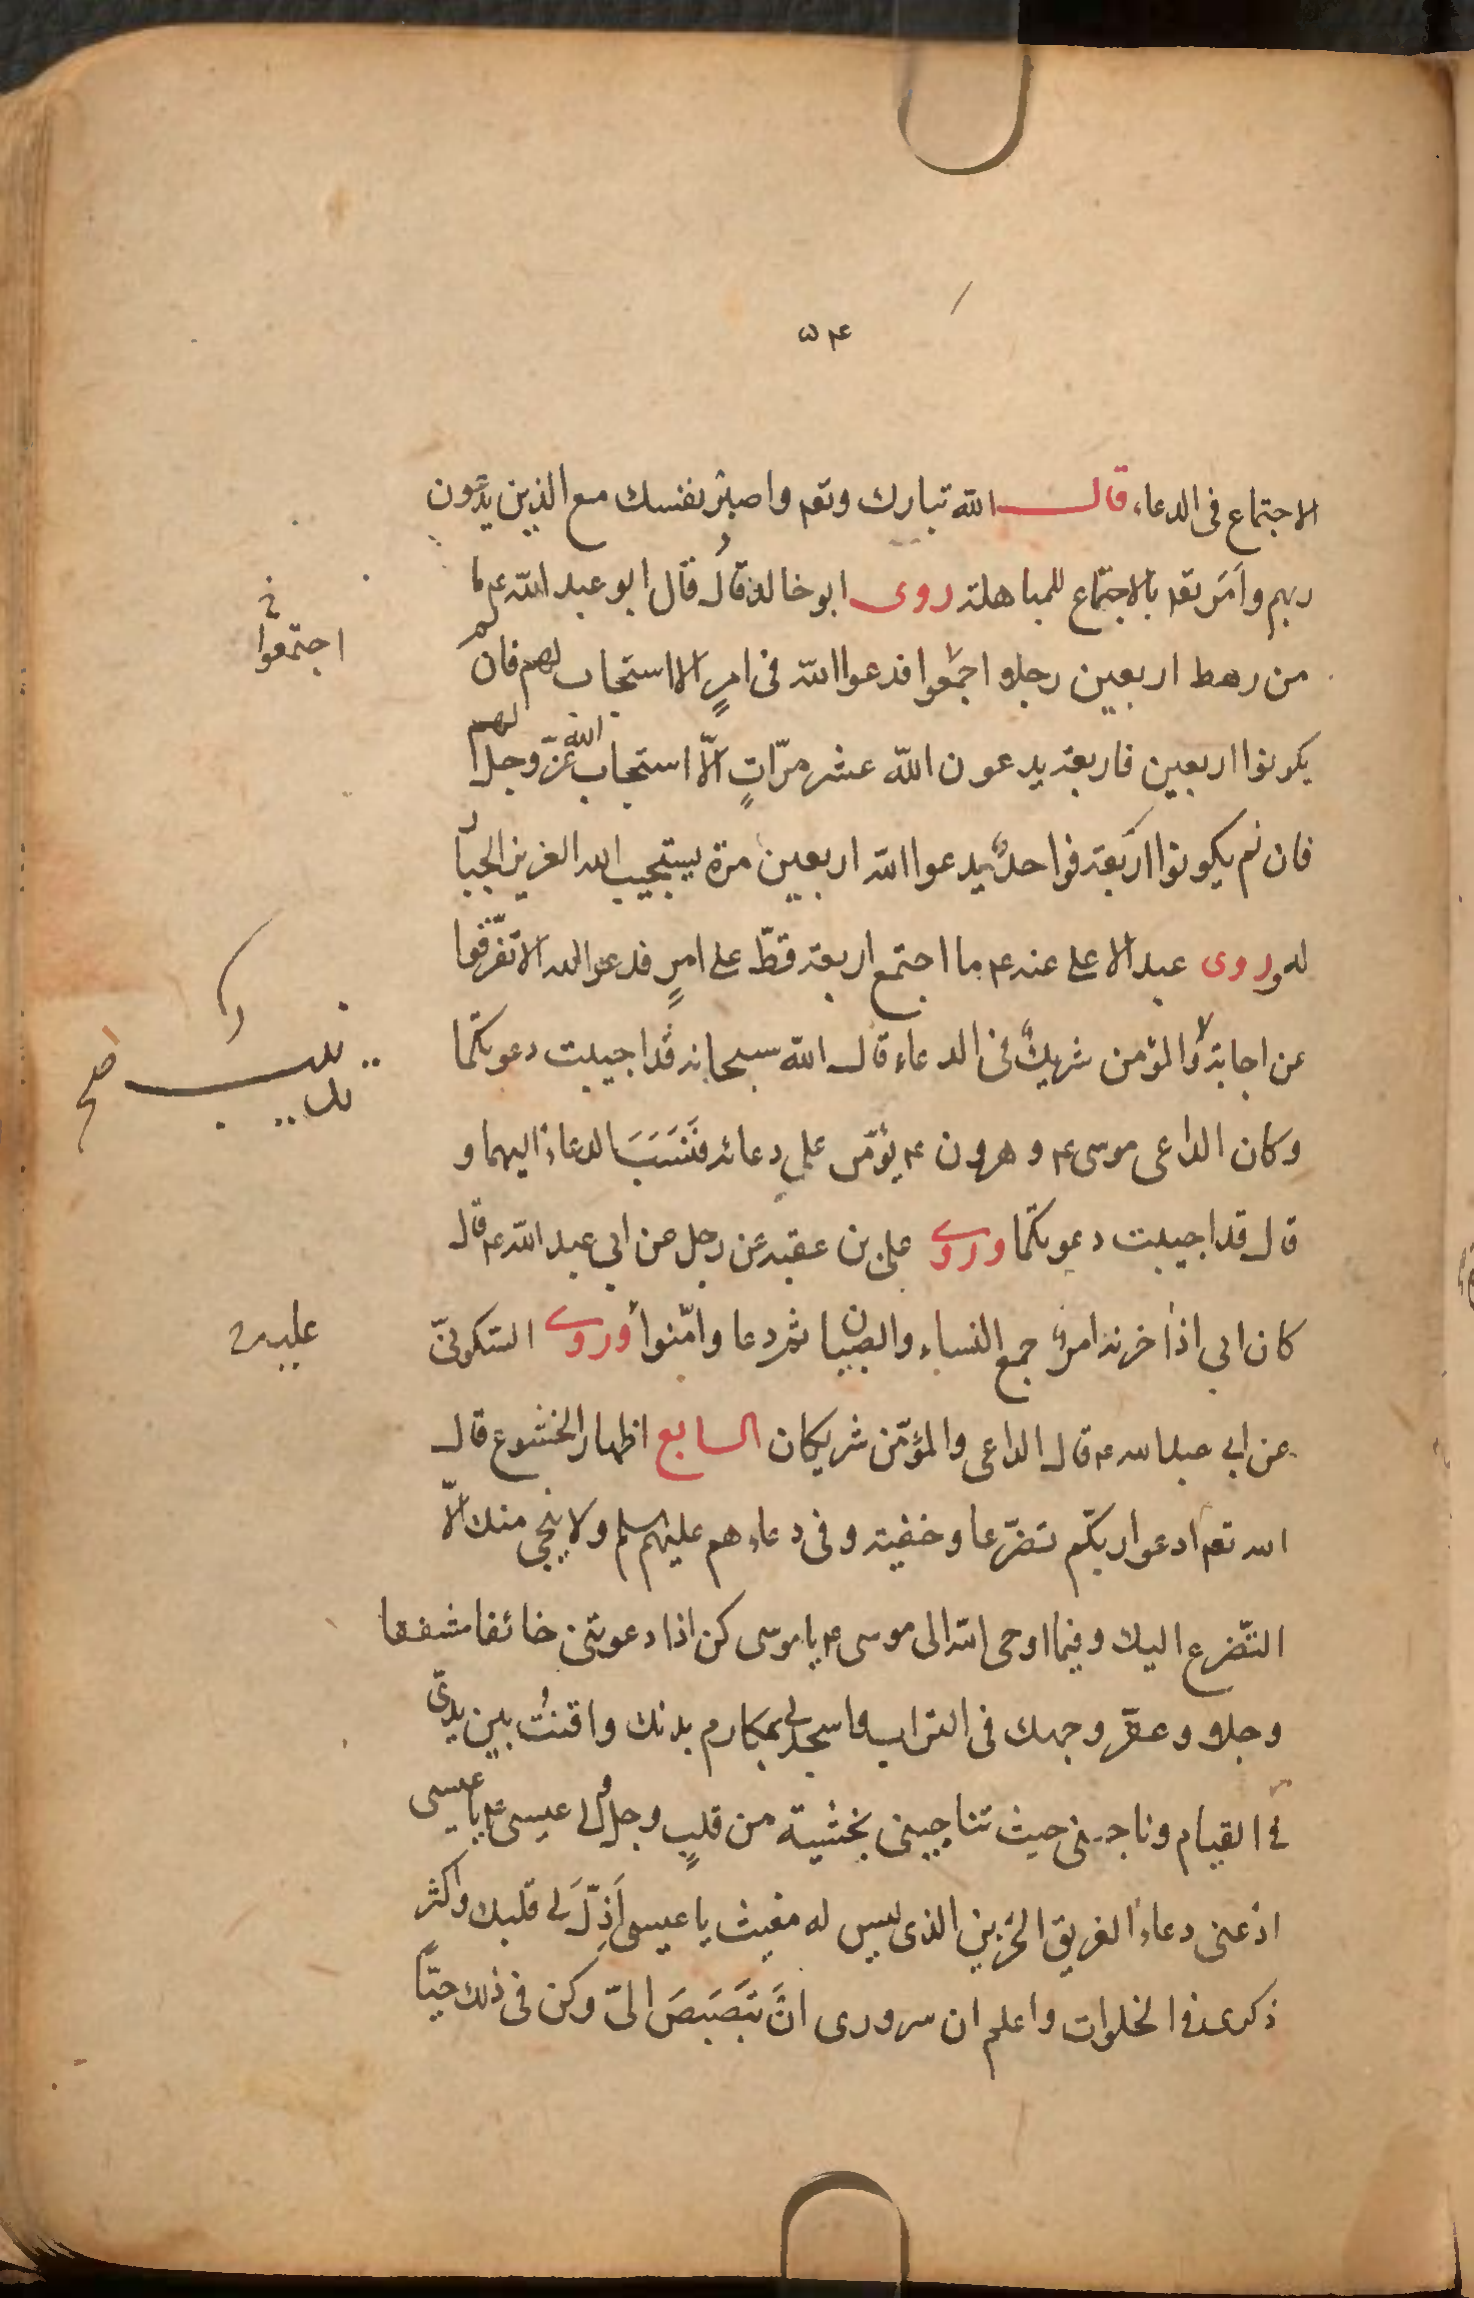 ۵۴
الاجتماع فى الدعاء قال الله تبارك وتعم واصبر نفسك مع الذين يدعون
ربهم وامَر تعم بالاجتماع للمباهلة روى ابو خالد قال قال ابو عبد الله عم ما
من رهط اربعين رجلا اجتمعوا فدعوا الله فى امرٍ الا استجاب لهم فان لم
اجتمعوا خ
يكونوا اربعين فاربعة يدعون الله عشر مرّاتٍ الّا استجاب الله عزّ وجل لهم
فان لم يكونوا اربعة فواحدٌ يدعوا الله اربعين مرة يستجيب الله العزيز الجبار
له وروى عبد الاعلى عنه عم ما اجتمع اربعة قطّ على امرٍ فدعوا الله الا تفرّقوا
عن اجابة والمؤمن شريكٌ فى الدعاء قال الله سبحانه قد اجيبت دعوتكما
صح
وكان الداعى موسى عم وهرون عم يؤمّن على دعائه فنَسَبَ الدعاء اليهما و
قال قد اجيبت دعوتكما وروى على بن عقبه عن رجل عن ابى عبد الله عم قال
كان ابى اذا حزنه امرٌ جمع النساء والصبيان ثم دعا وامّنوا وروى السّكونىّ
عن ابى عبد الله عم قال الداعى والمؤمّن شريكان السابع اظهار الخشوع قال
الله تعم ادعوا ربكم تضرّعا وخفية وفى دعاءهم عليهم السلم ولا ينجى منك الّا
التّضرع اليك وفيما اوحى الله الى موسى عم يا موسى كن اذا دعوتنى خائفا مشفقا
وجلا وعفّر وجهك فى التراب واسجد لى بمكارم بدنك واقنتْ بين يدىّ
فى القيام وناجنى حيث تناجينى بخشية من قلبٍ وجل والى عيسى عم يا عيسى
ادعنى دعاء الغريق الحزين الذى ليس له مغيث يا عيسى اَذِلَّ لى قلبك واكثر
ذكرى فى الخلوات واعلم ان سرورى انَّ تبَصبَصَ الىّ وكن فى ذلك حيّاً